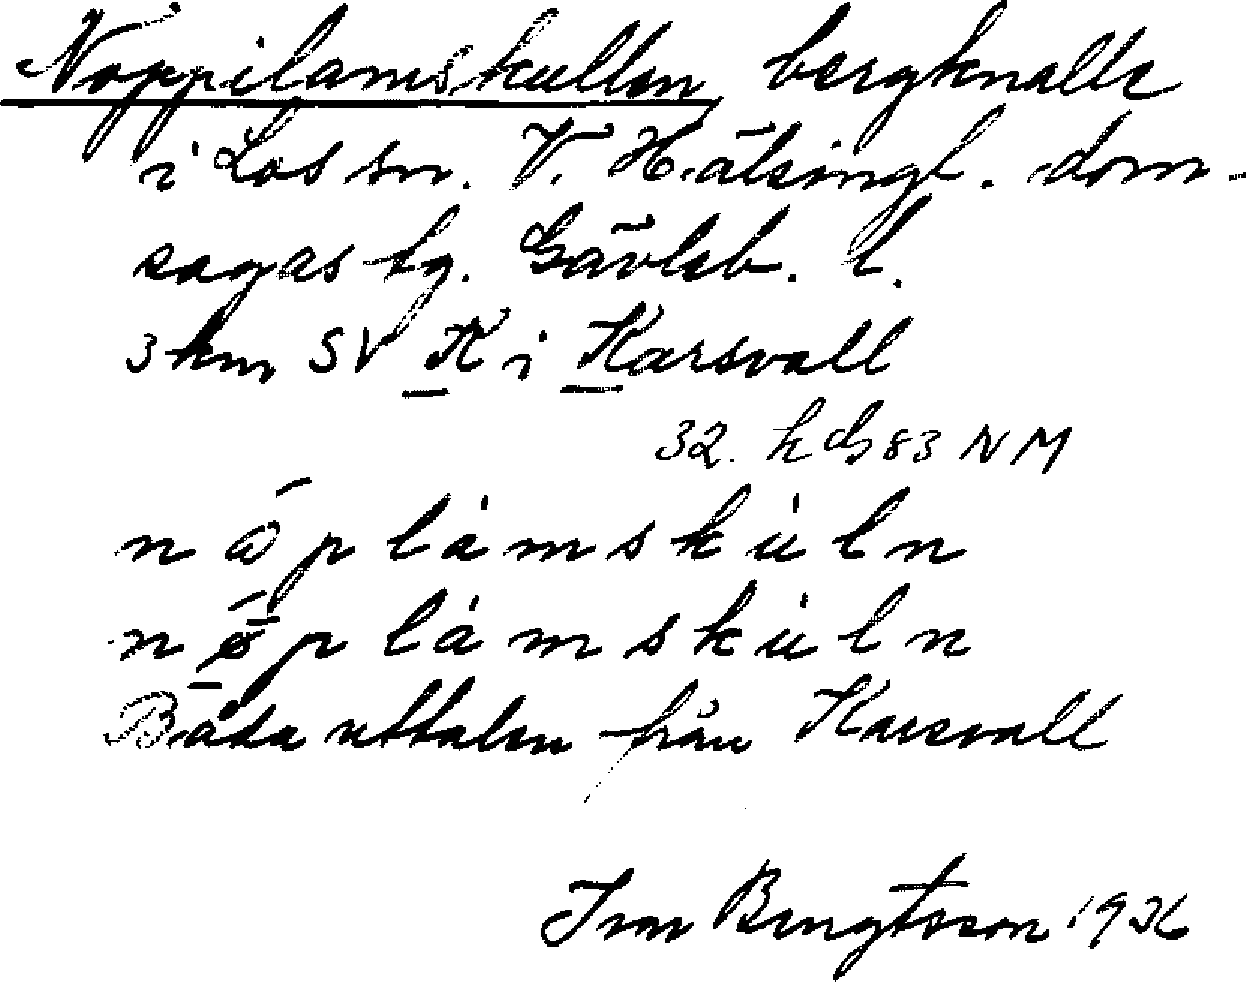 Noppilamskullen bergknalle
i Los sn. V. Hälsingl. dom-
sagas tg. Gävleb. l.
3 km SV K i Karsvall
32. h d 83 NM
n ó p l å m s k ù l n
n ǿ p l å m s k ù l n
Båda uttalen från Karsvall
Ivar Bengtsson 1936